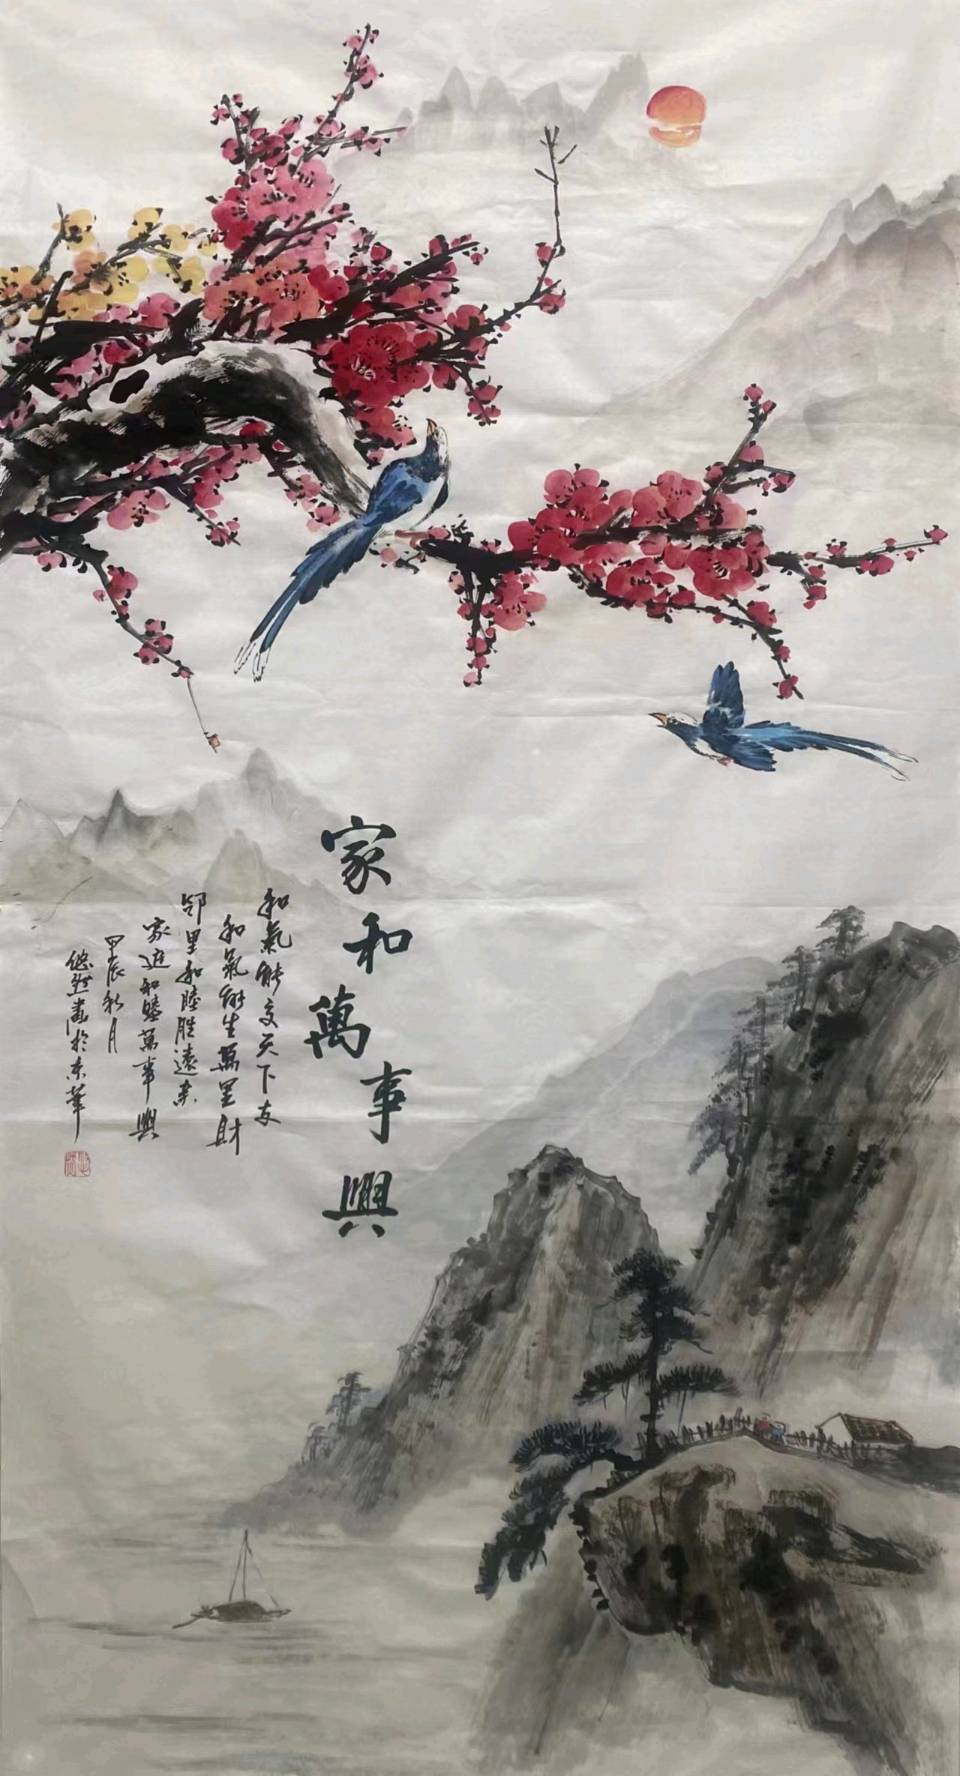 家和萬事興
和氣能交天下友
和氣能生萬里財
邻里和睦胜遠亲
家庭和睦萬事興
甲辰秋月
悠然畫於东華